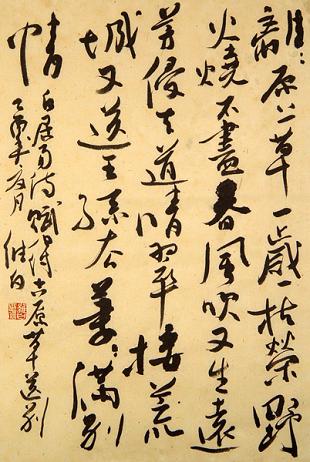 離〻原上草一歲一枯榮野
火燒不盡春風吹又生遠
芳侵古道晴翠接荒
城又送王孫去萋〻滿別
情
白居易詩賦得古原草送別